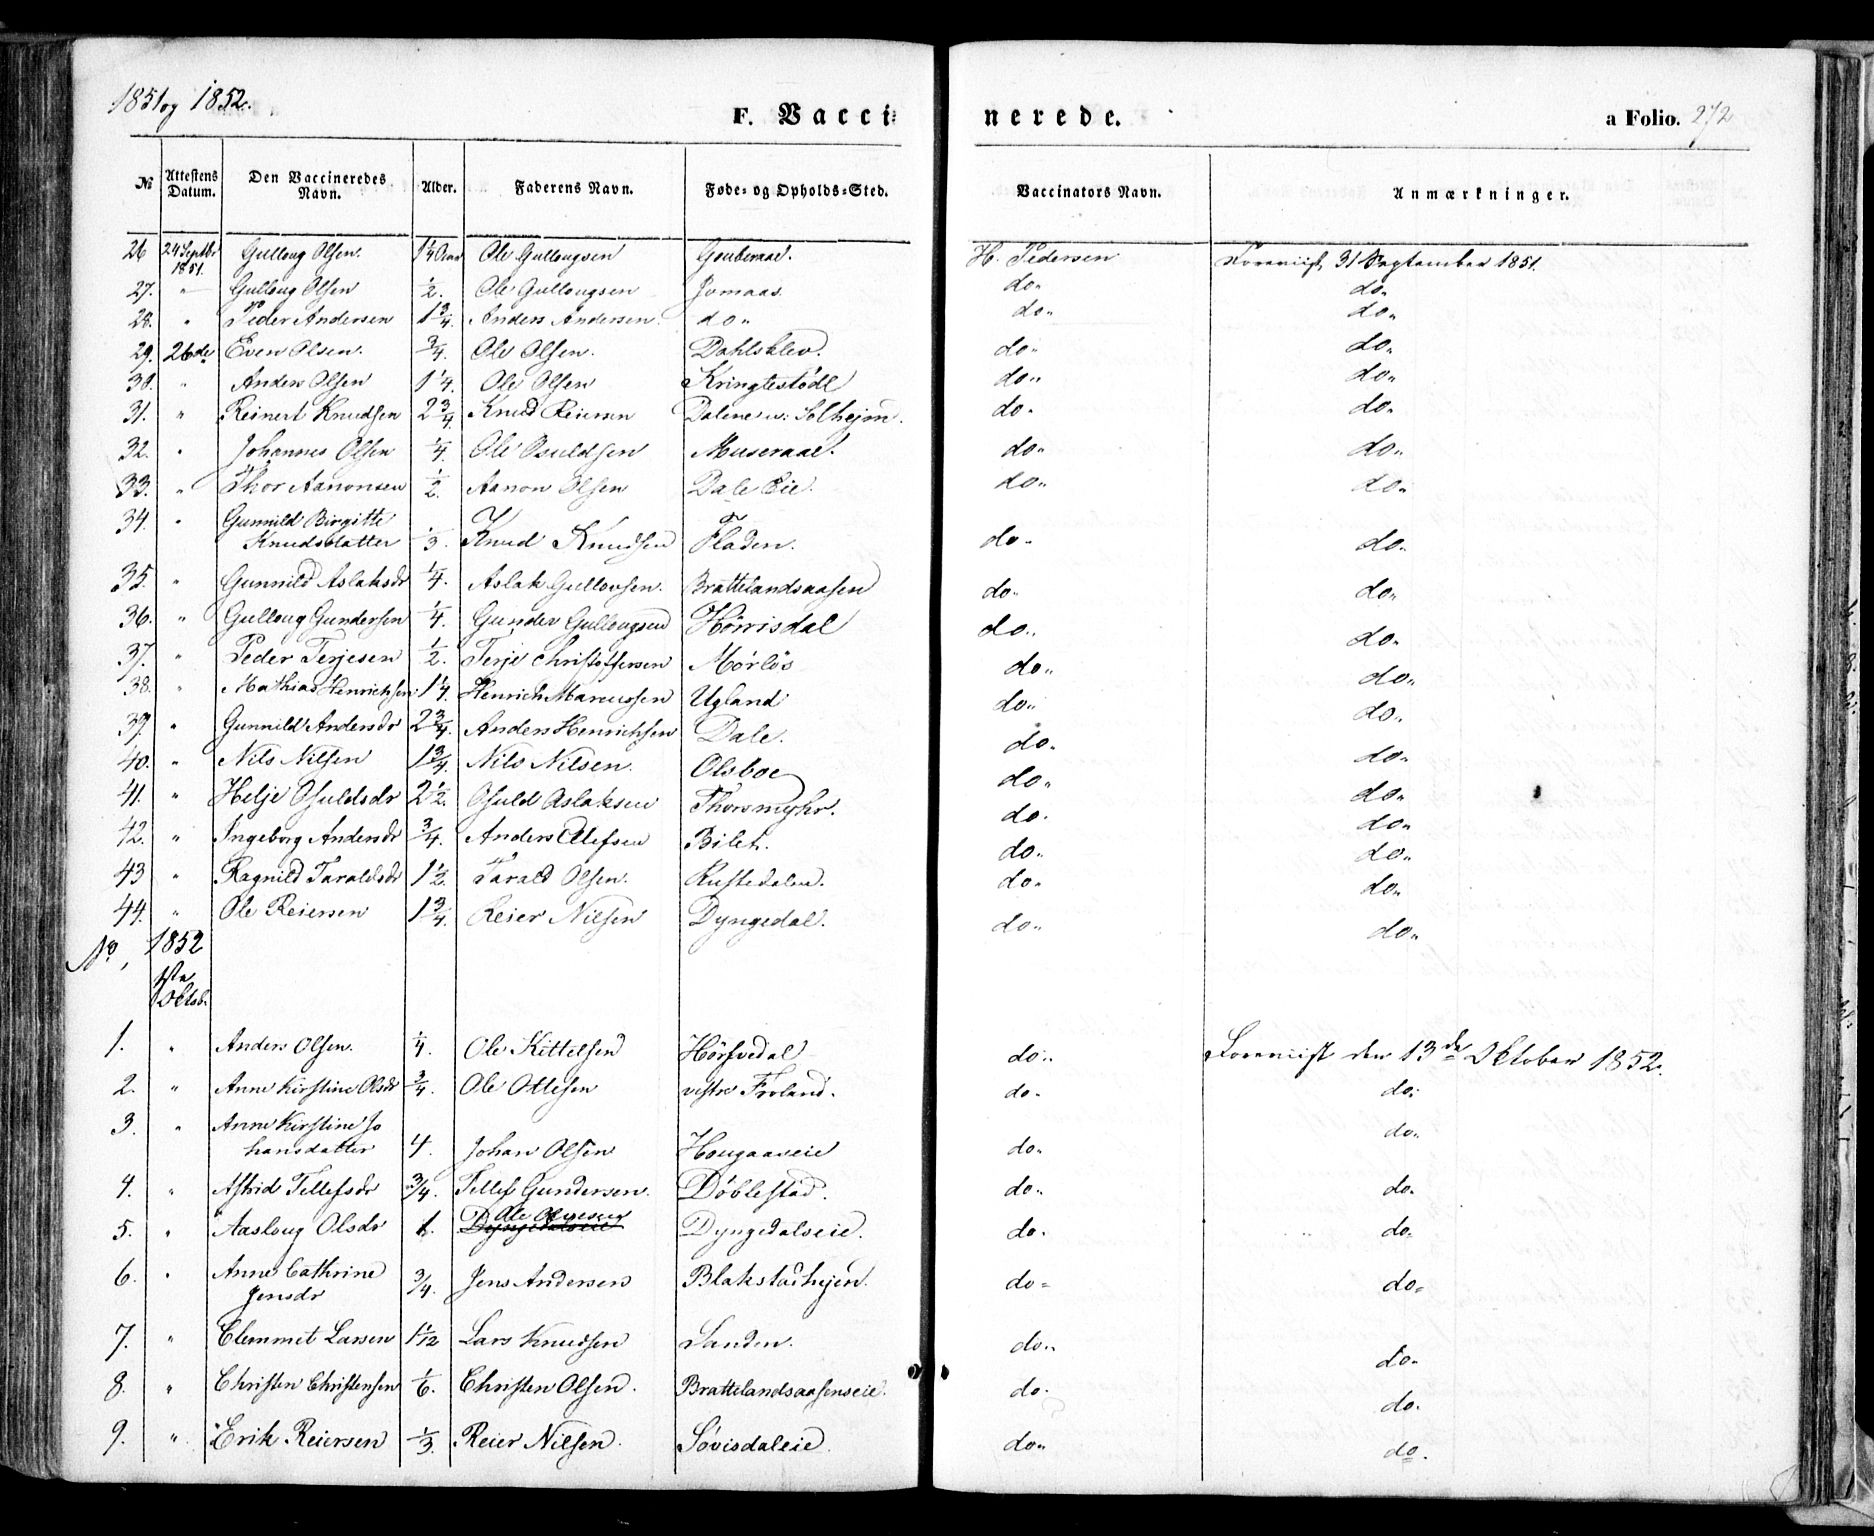 1851 og 1852.
F. Vacci⸗ nerede. a Folio. 272
№ Attestens Datum. Den Vaccineredes Navn. Alder. Faderens Navn. Føde- og Opholds-Sted. Vaccinators Navn. Anmærkninger.
26 24 Septbr 1851. Gulloug Olsen. 1¼ Aar Ole Gullougsen H. Pedersen 31 September 1851.
27. " Gulloug Olsen ½. Ole Gullougsen Jomaas do" do"
28. " Peder Andersen 1¾. Anders Andersen. do" do" do"
29. 26de Even Olsen. ¾. Ole Olsen. Dahlsklev. do" do"
30. " Anders Olsen 1¼. Ole Olsen Kringlestødl do" do"
31. " Reinert Knudsen 2¾. Knud Reiersen Dalene u: Solhejm. do" do"
32. " Johannes Olsen ¼. Ole Osuldsen Museraae. do" do"
33. " Thor Aanonsen ½. Aanon Olsen Dale Eie. do" do"
34. " Gunnild Birgitte
Knudsdatter ⅓. Knud Knudsen Fladen. do" do.
35. " Gunnild Aslaksdr ¼. Aslak Gullovsen. Brattelandsaasen do" do"
36. " Gulloug Gundersen ¼. Gunder Gullougsen Hørrisdal do" do"
37. " Peder Terjesen ½. Terje Christoffersen Mørløs do" do"
38. " Mathias Henrichsen 1¼. Henrich Marcussen Ugland do" do"
39. " Gunnild Andersdr 2¾. Anders Henrichsen Dale. do" do"
40. " Nils Nilsen 1¾. Nils Nilsen. Olsboe do" do"
41. " Helje Osuldsdr 2½. Osuld Aslaksen Thorsmyhr. do. do"
42. " Ingeborg Andersdr ¾. Anders Ellefsen Bilet. do" do"
43 " Ragnild Taraldsdr 1½. Tarald Olsen. Rustedalen. do" do"
44. " Ole Reiersen 1¾. Reier Nilsen Dyngedal. do" do"
No, 1852
Octob.
1. " Anders Olsen. ¼. Ole Kittelsen Hørsvedal do" den 13de Oktober 1852.
2. " Anne Kirstine Olsdr ¾. Ole Ottesen vestre Froland. do" do"
3. " Anne Kirstine Jo
hansdatter 4. Johan Olsen Hougaaseie do" do"
4. " Astrid Tellefsdr ¾. Tellef Gundersen. Døblestad. do" do"
5. " Aasloug Olsdr 1. Ole Olsen Dyngedalseie Dyngedalseie. do" do"
6. " Anne Cathrine
Jensdr ¾. Jens Andersen Blakstadhejen. do" do"
7. " Clemmet Larsen 1 1/12 Lars Knudsen Sanden. do" do"
8. " Christen Christensen ⅙. Christen Olsen. Brattelandsaasenseie. do" do.
9. " Erik Reiersen ⅓. Reier Nilsen. Søvisdaleie do" do.